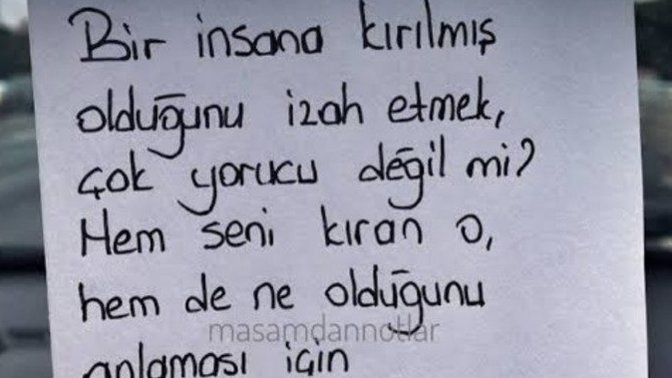 Bir insana kırılmış
olduğunu izah etmek,
çok yorucu değil mi?
Hem seni kıran o,
hem de ne olduğunu
masamdannotlar
anlaması için